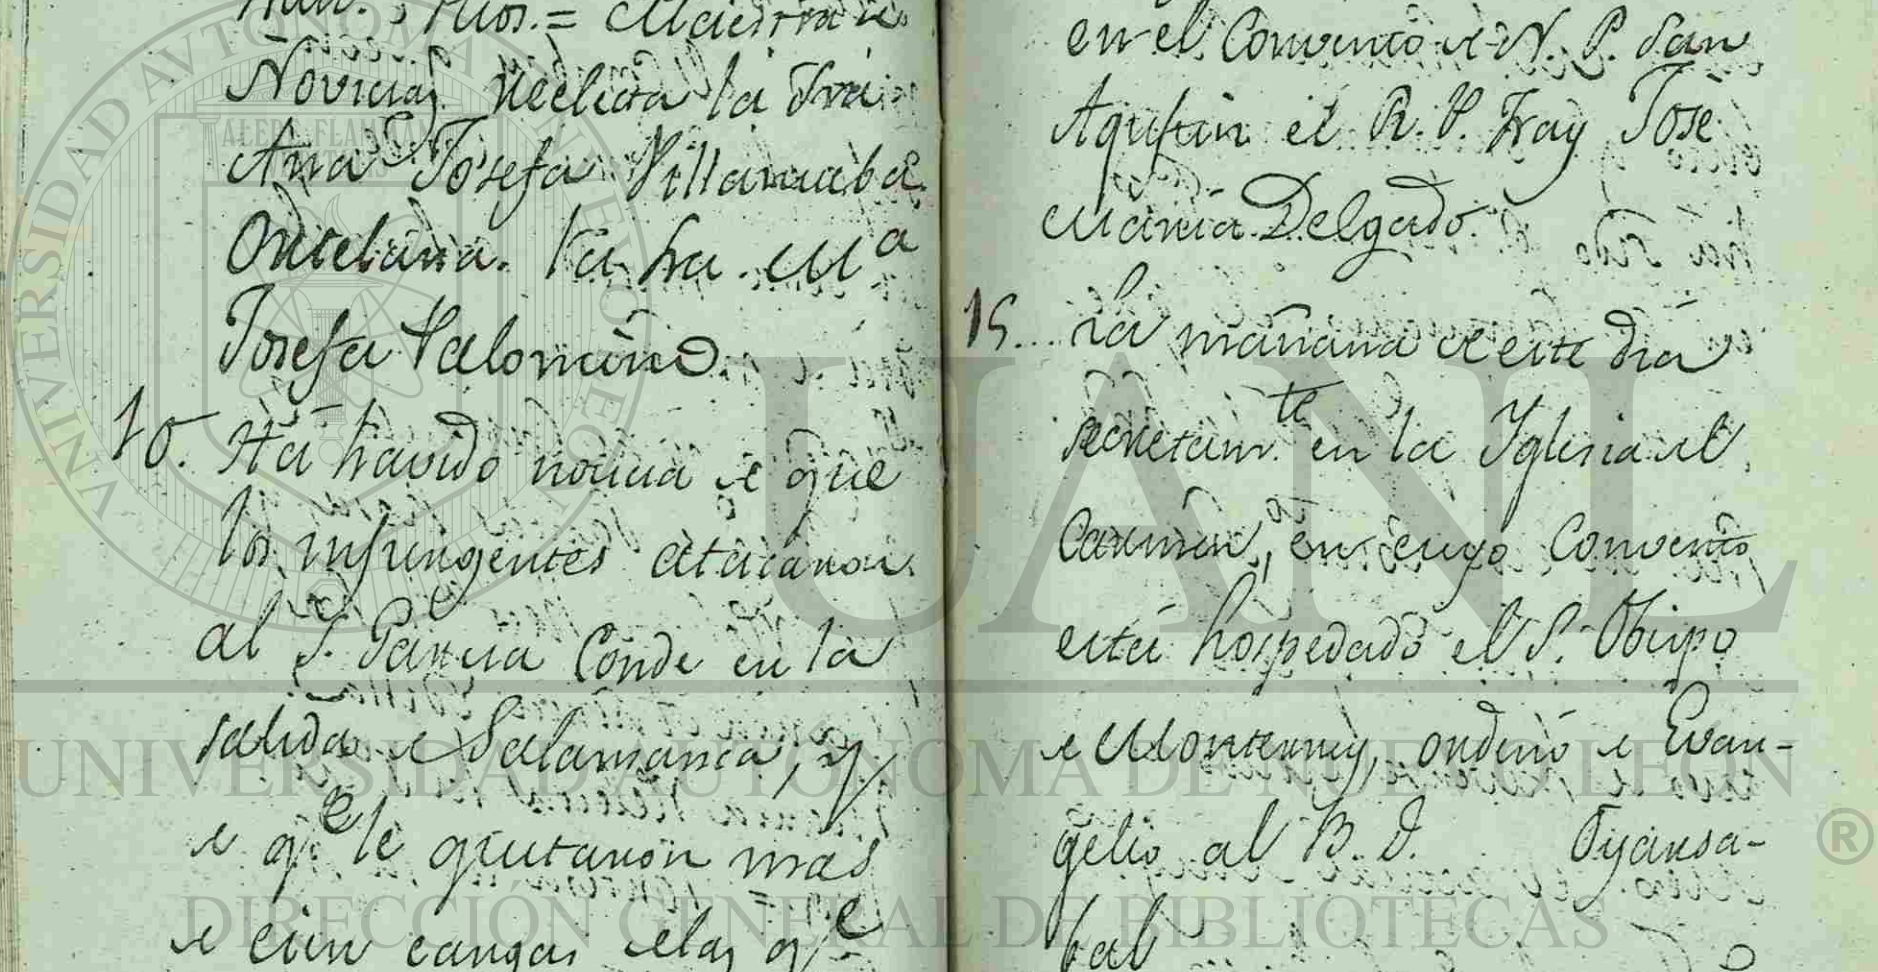 Rios. = Maestra de
Novicias reelecta la Sra.
Ana Josefa Villarrueba
Orellana. La Sra. Mª
Josefa Palomino.
10. Ha havido noticia de que
los insurgentes atacaron
al S. Garcia Conde en la
salida de Salamanca, y
de qe. le quitaron mas
de cien cargas de las qe
en el Convento de N. P. San
Agustin el R. P. Fray Jose
Maria Delgado.
15... La mañana de este dia
secretamte. en la Yglesia del
Carmen, en cuyo Convento
está hospedado el S. Obispo
de Monterrey, ordenó de Evan-
gelio al B. D. Oyarsa-
bal
UNIVERSIDAD AUTONOMA DE NUEVO LEON
ALERE FLAMMAM
UANL
UNIVERSIDAD AUTÓNOMA DE NUEVO LEÓN
®
DIRECCIÓN GENERAL DE BIBLIOTECAS